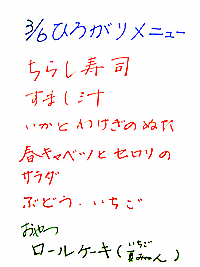 3/6 ひろがりメニュー
ちらし寿司
すまし汁
いかとわけぎのぬた
春キャベツとセロリの
サラダ
ぶどう・いちご
おやつ
ロールケーキ(いちご 夏みかん)